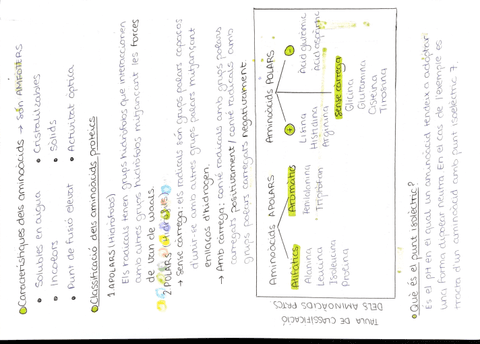 Característiques dels aminoàcids → Són AMFÒTERS
• Solubles en aigua • Cristal·litzables
• Incolors • Sòlids
• Punt de fusió elevat • Activitat òptica
Classificació dels aminoàcids proteics
1. APOLARS (Hidròfobs)
Els radicals tenen grups hidròfobs que interaccionen
amb altres grups hidròfobs mitjançant les forces
de Van de Waals
2. POLARS (Hidròfils)
→ Sense càrrega: els radicals són grups polars capaços
d'unir-se amb altres grups polars mitjançant
enllaços d'hidrogen.
→ Amb càrrega: conté radicals amb grups polars
carregats positivament / conté radicals amb
grups polars carregats negativament.
TAULA DE CLASSIFICACIÓ
DELS AMINOÀCIDS PATCS.
Aminoàcids APOLARS Aminoàcids POLARS
Alifàtics Aromàtics + -
Alanina Fenilalanina Lisina Àcid glutàmic
Leucina Triptòfan Histidina Àcid aspàrtic
Isoleucina Arginina
Prolina Sense càrrega
Glicina
Glutamina
Cisteïna
Tirosina
• Què és el punt isoelèctric?
És el pH en el qual un aminoàcid tendeix a adoptar
una forma dipolar neutra. En el cas de l'exemple es
tracta d'un aminoàcid amb punt isoelèctric 7.